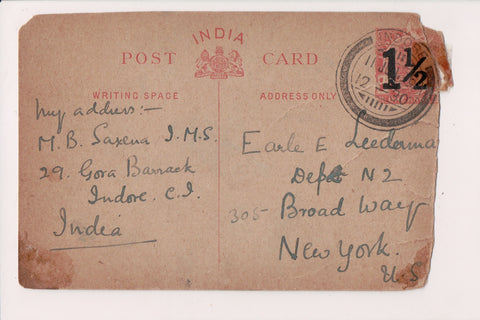 INDIA
POST CARD
WRITING SPACE
ADDRESS ONLY
1½
My address:—
M. B. Saxena I.M.S.
29. Gora Barrack
Indore. C.I.
India
Earle E Leederma
Dept N 2
305- Broad Way
New York.
U.S